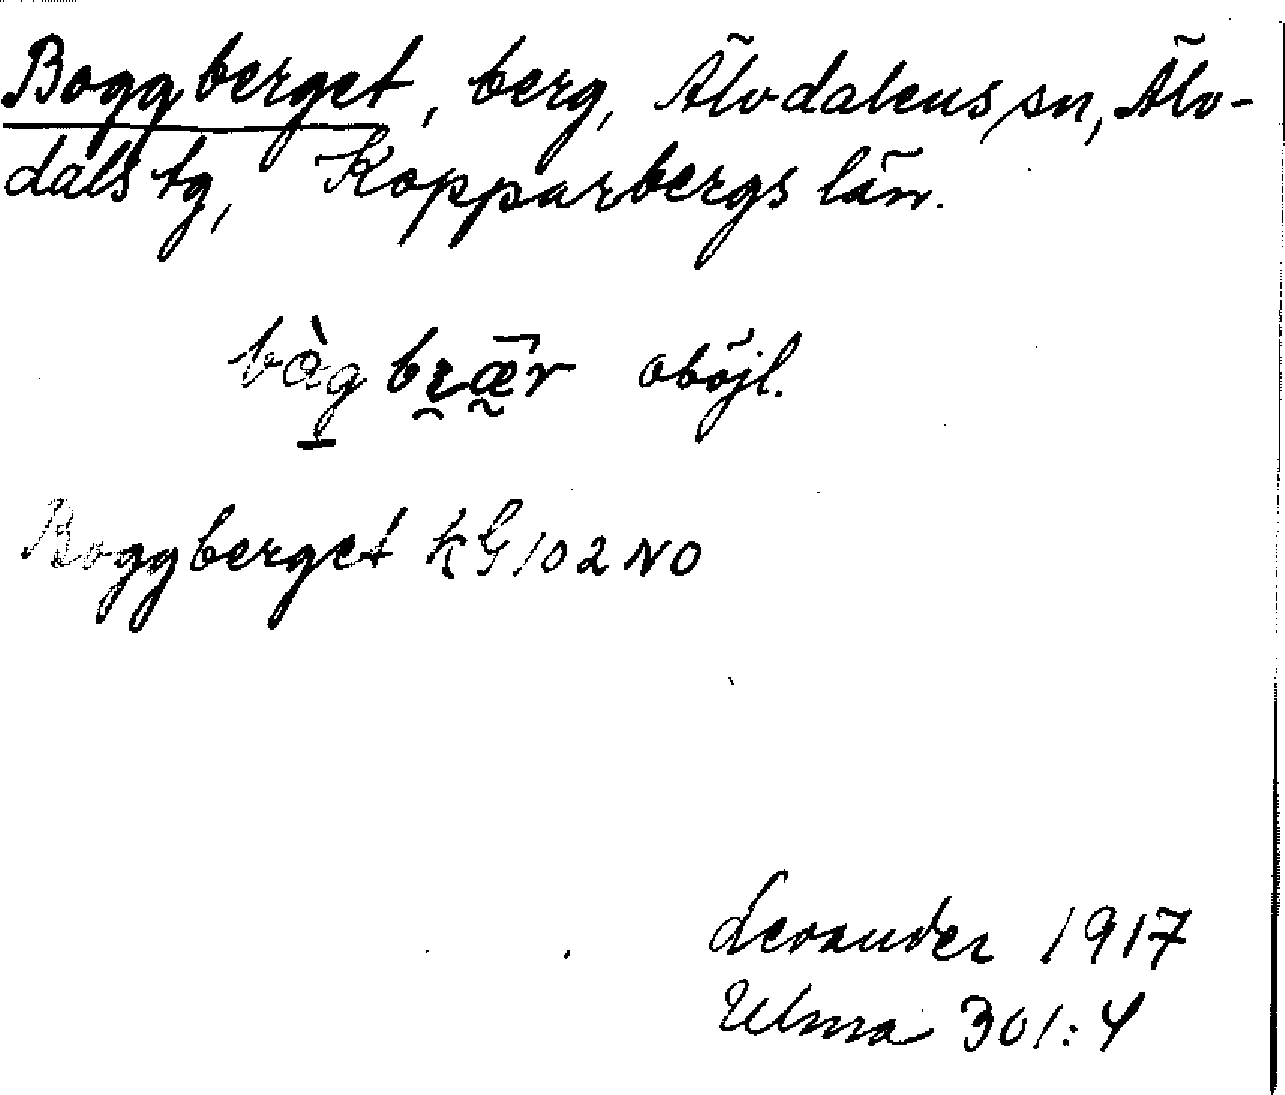 Boggberget, berg, Älvdalens sn, Älv-
dals tg, Kopparbergs län.
bàg brær oböjl.
Boggberget kG 102 NO
Levander 1917
Ulma 301:4